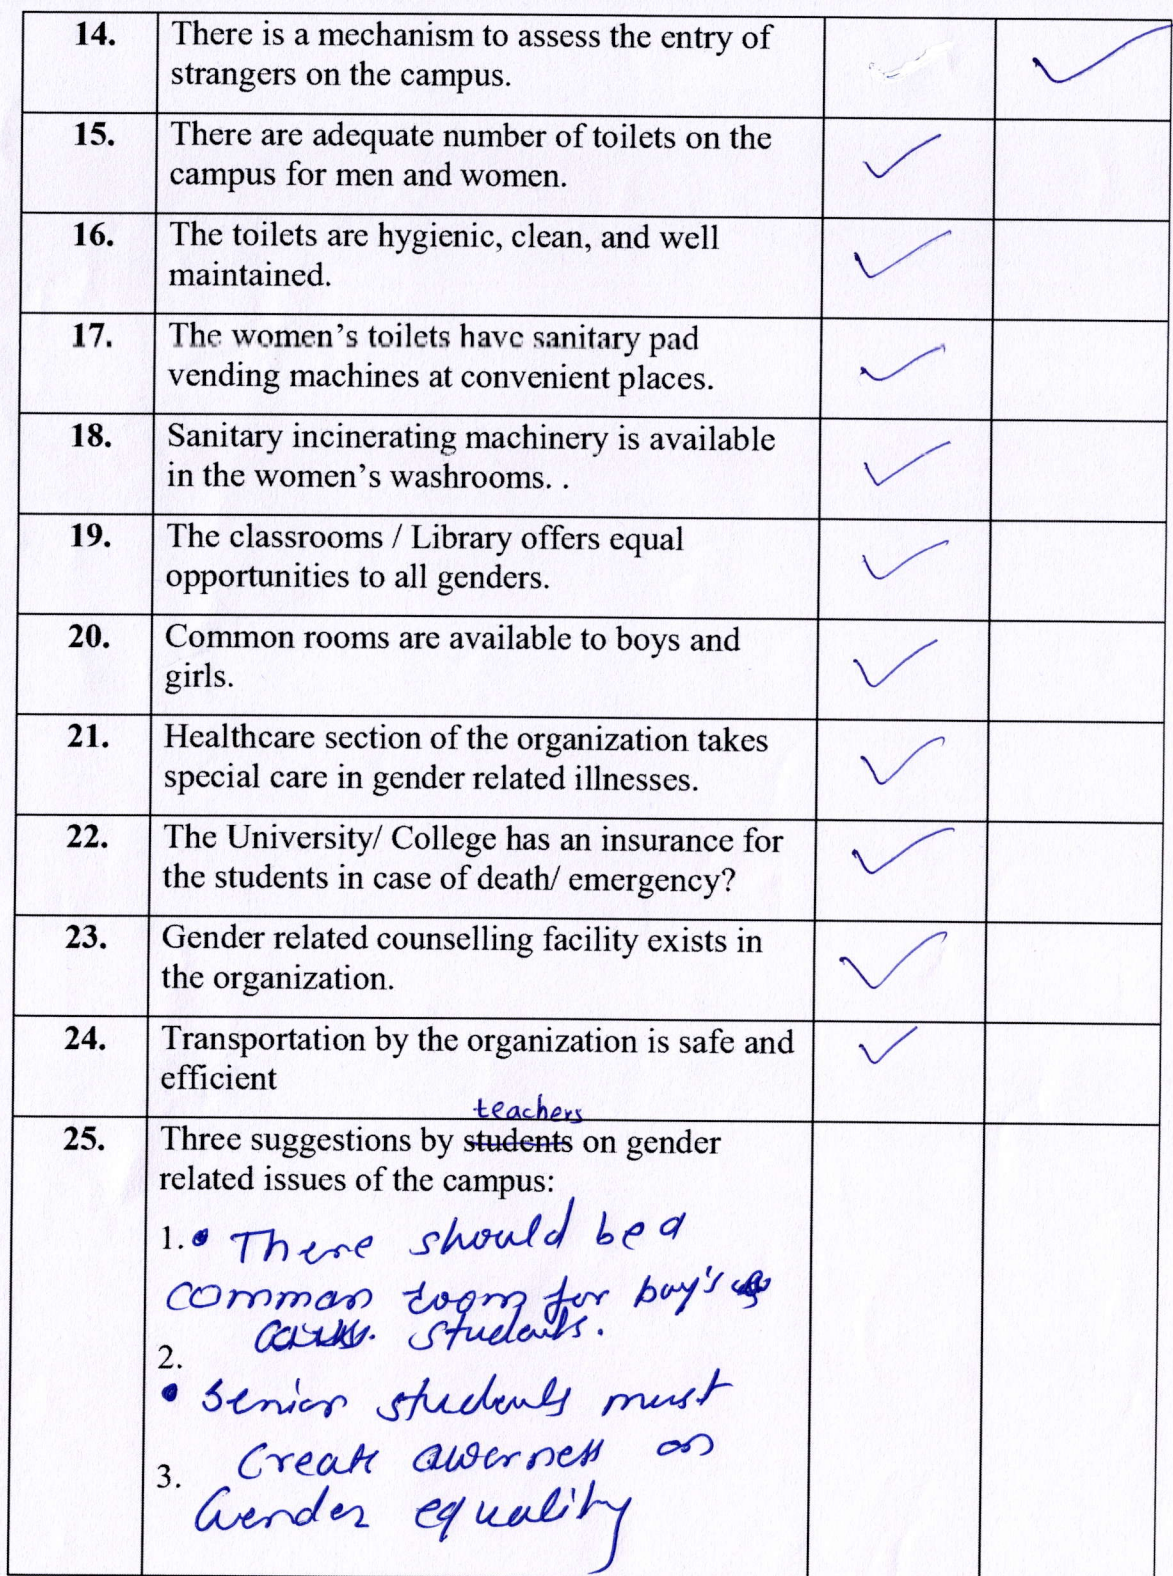 14. There is a mechanism to assess the entry of
strangers on the campus.
15. There are adequate number of toilets on the
campus for men and women.
16. The toilets are hygienic, clean, and well
maintained.
17. The women's toilets have sanitary pad
vending machines at convenient places.
18. Sanitary incinerating machinery is available
in the women's washrooms. .
19. The classrooms / Library offers equal
opportunities to all genders.
20. Common rooms are available to boys and
girls.
21. Healthcare section of the organization takes
special care in gender related illnesses.
22. The University/ College has an insurance for
the students in case of death/ emergency?
23. Gender related counselling facility exists in
the organization.
24. Transportation by the organization is safe and
efficient
teachers
25. Three suggestions by students on gender
related issues of the campus:
1. • There should be a
common room for boy's
students.
2.
• Senior students must
3. Create awerness on
Gender equality